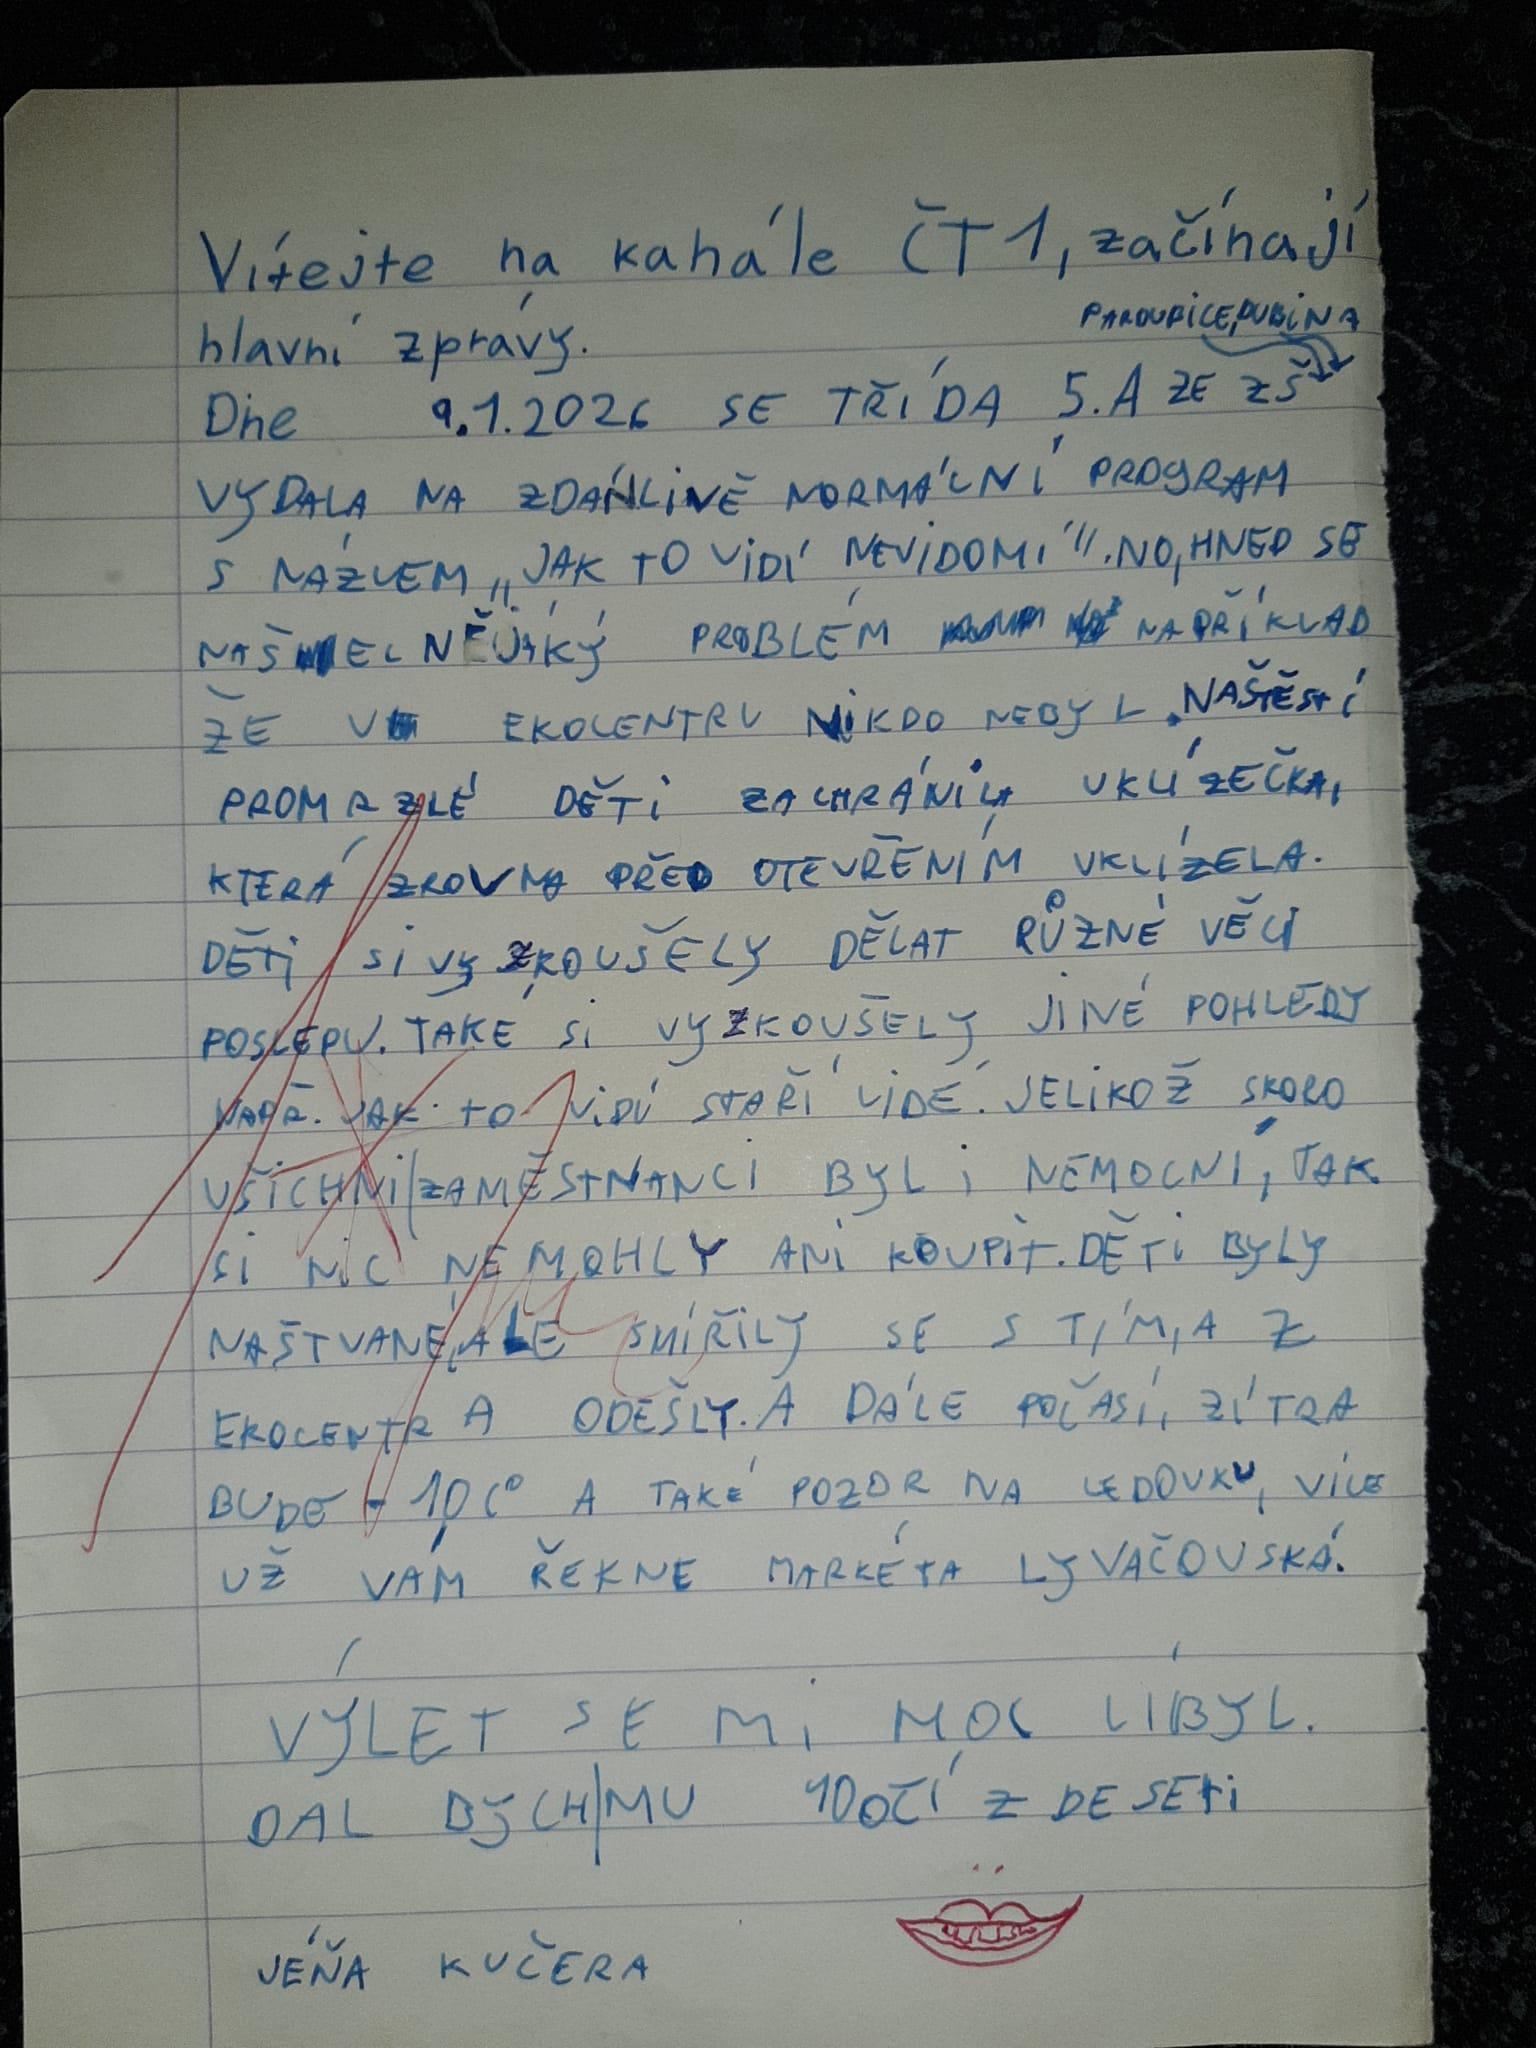 Vítejte na kanále ČT1, začínají
hlavní zprávy.
PARDUBICE, DUBINA
Dne 9.1.2026 SE TŘÍDA 5.A ZE ZŠ
VYDALA NA ZDÁNLIVĚ NORMÁLNÍ PROGRAM
S NÁZVEM „JAK TO VIDÍ NEVIDOMÍ". NO, HNED SE
NAŠEL NĚJAKÝ PROBLÉM NAPŘÍKLAD
ŽE V EKOCENTRU NIKDO NEBYL. NAŠTĚSTÍ
PROMRZLÉ DĚTI ZACHRÁNILA UKLÍZEČKA,
KTERÁ ZROVNA PŘED OTEVŘENÍM UKLÍZELA.
DĚTI SI VYZKOUŠELY DĚLAT RŮZNÉ VĚCI
POSLEPU. TAKÉ SI VYZKOUŠELY JINÉ POHLEDY
NAPŘ. JAK TO VIDÍ STAŘÍ LIDÉ. JELIKOŽ SKORO
VŠICHNI ZAMĚSTNANCI BYLI NEMOCNÍ, TAK
SI NIC NEMOHLY ANI KOUPIT. DĚTI BYLY
NAŠTVANÉ, ALE SMÍŘILY SE S TÍM, A Z
EKOCENTRA ODEŠLY. A DÁLE POČASÍ, ZÍTRA
BUDE -10C° A TAKÉ POZOR NA LEDOVKU, VÍCE
UŽ VÁM ŘEKNE MARKÉTA LYVAČOVSKÁ.
VÝLET SE MI MOC LÍBYL.
DAL BYCH MU 10OČÍ Z DESETI
JÉŇA KUČERA